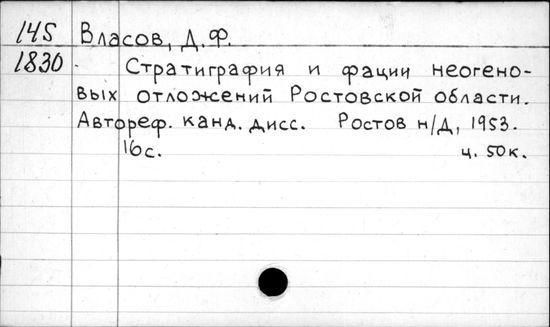 145 Власов, Д.Ф.
1830 Стратиграфия и фации неогено-
вых отложений Ростовской области.
Автореф. канд. дисс. Ростов н/Д, 1953.
16с. ц. 50к.